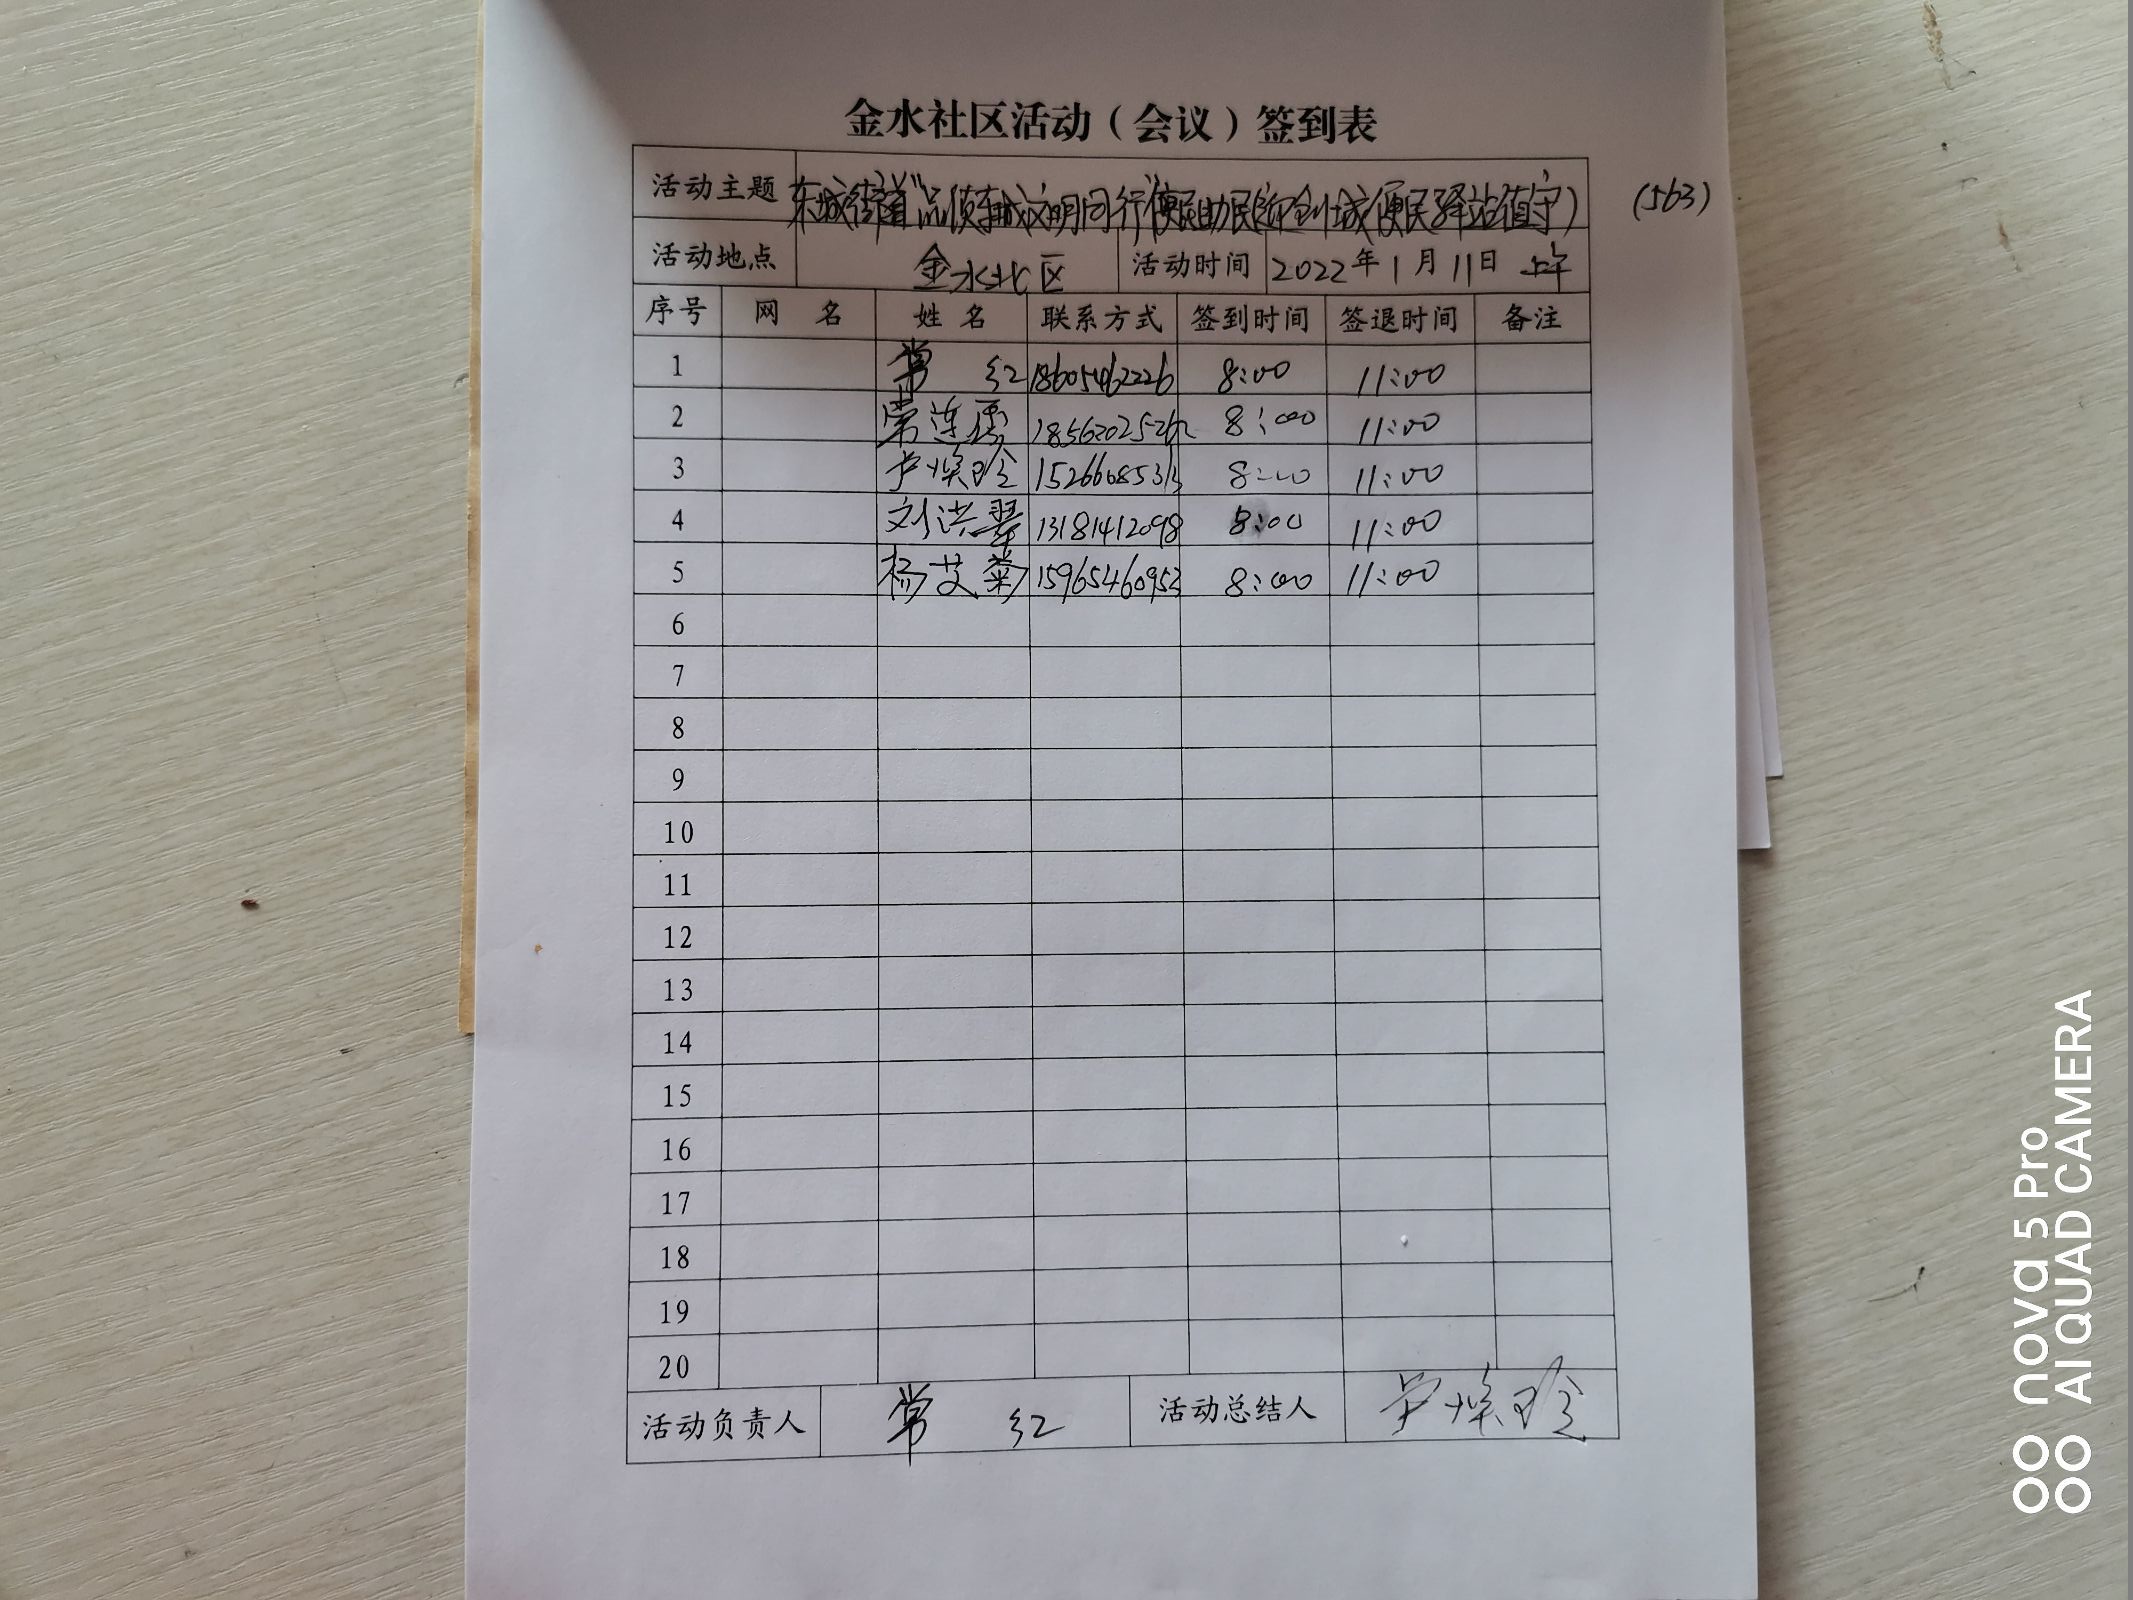 金水社区活动（会议）签到表
活动主题 东城街道"品质东城文明同行"便民助民(迎创城便民驿站值守) (563)
活动地点 金水北区 活动时间 2022年1月11日 上午
序号 网 名 姓 名 联系方式 签到时间 签退时间 备注
1 常 红 18605462226 8:00 11:00
2 常连 8:00 11:00
3 卢焕玲 1526668531 8:00 11:00
4 刘洪翠 13181412098 8:00 11:00
5 杨艾菊 15965460953 8:00 11:00
6
7
8
9
10
11
12
13
14
15
16
17
18
19
20
活动负责人 常 红 活动总结人 卢焕玲
nova 5 Pro
AI QUAD CAMERA